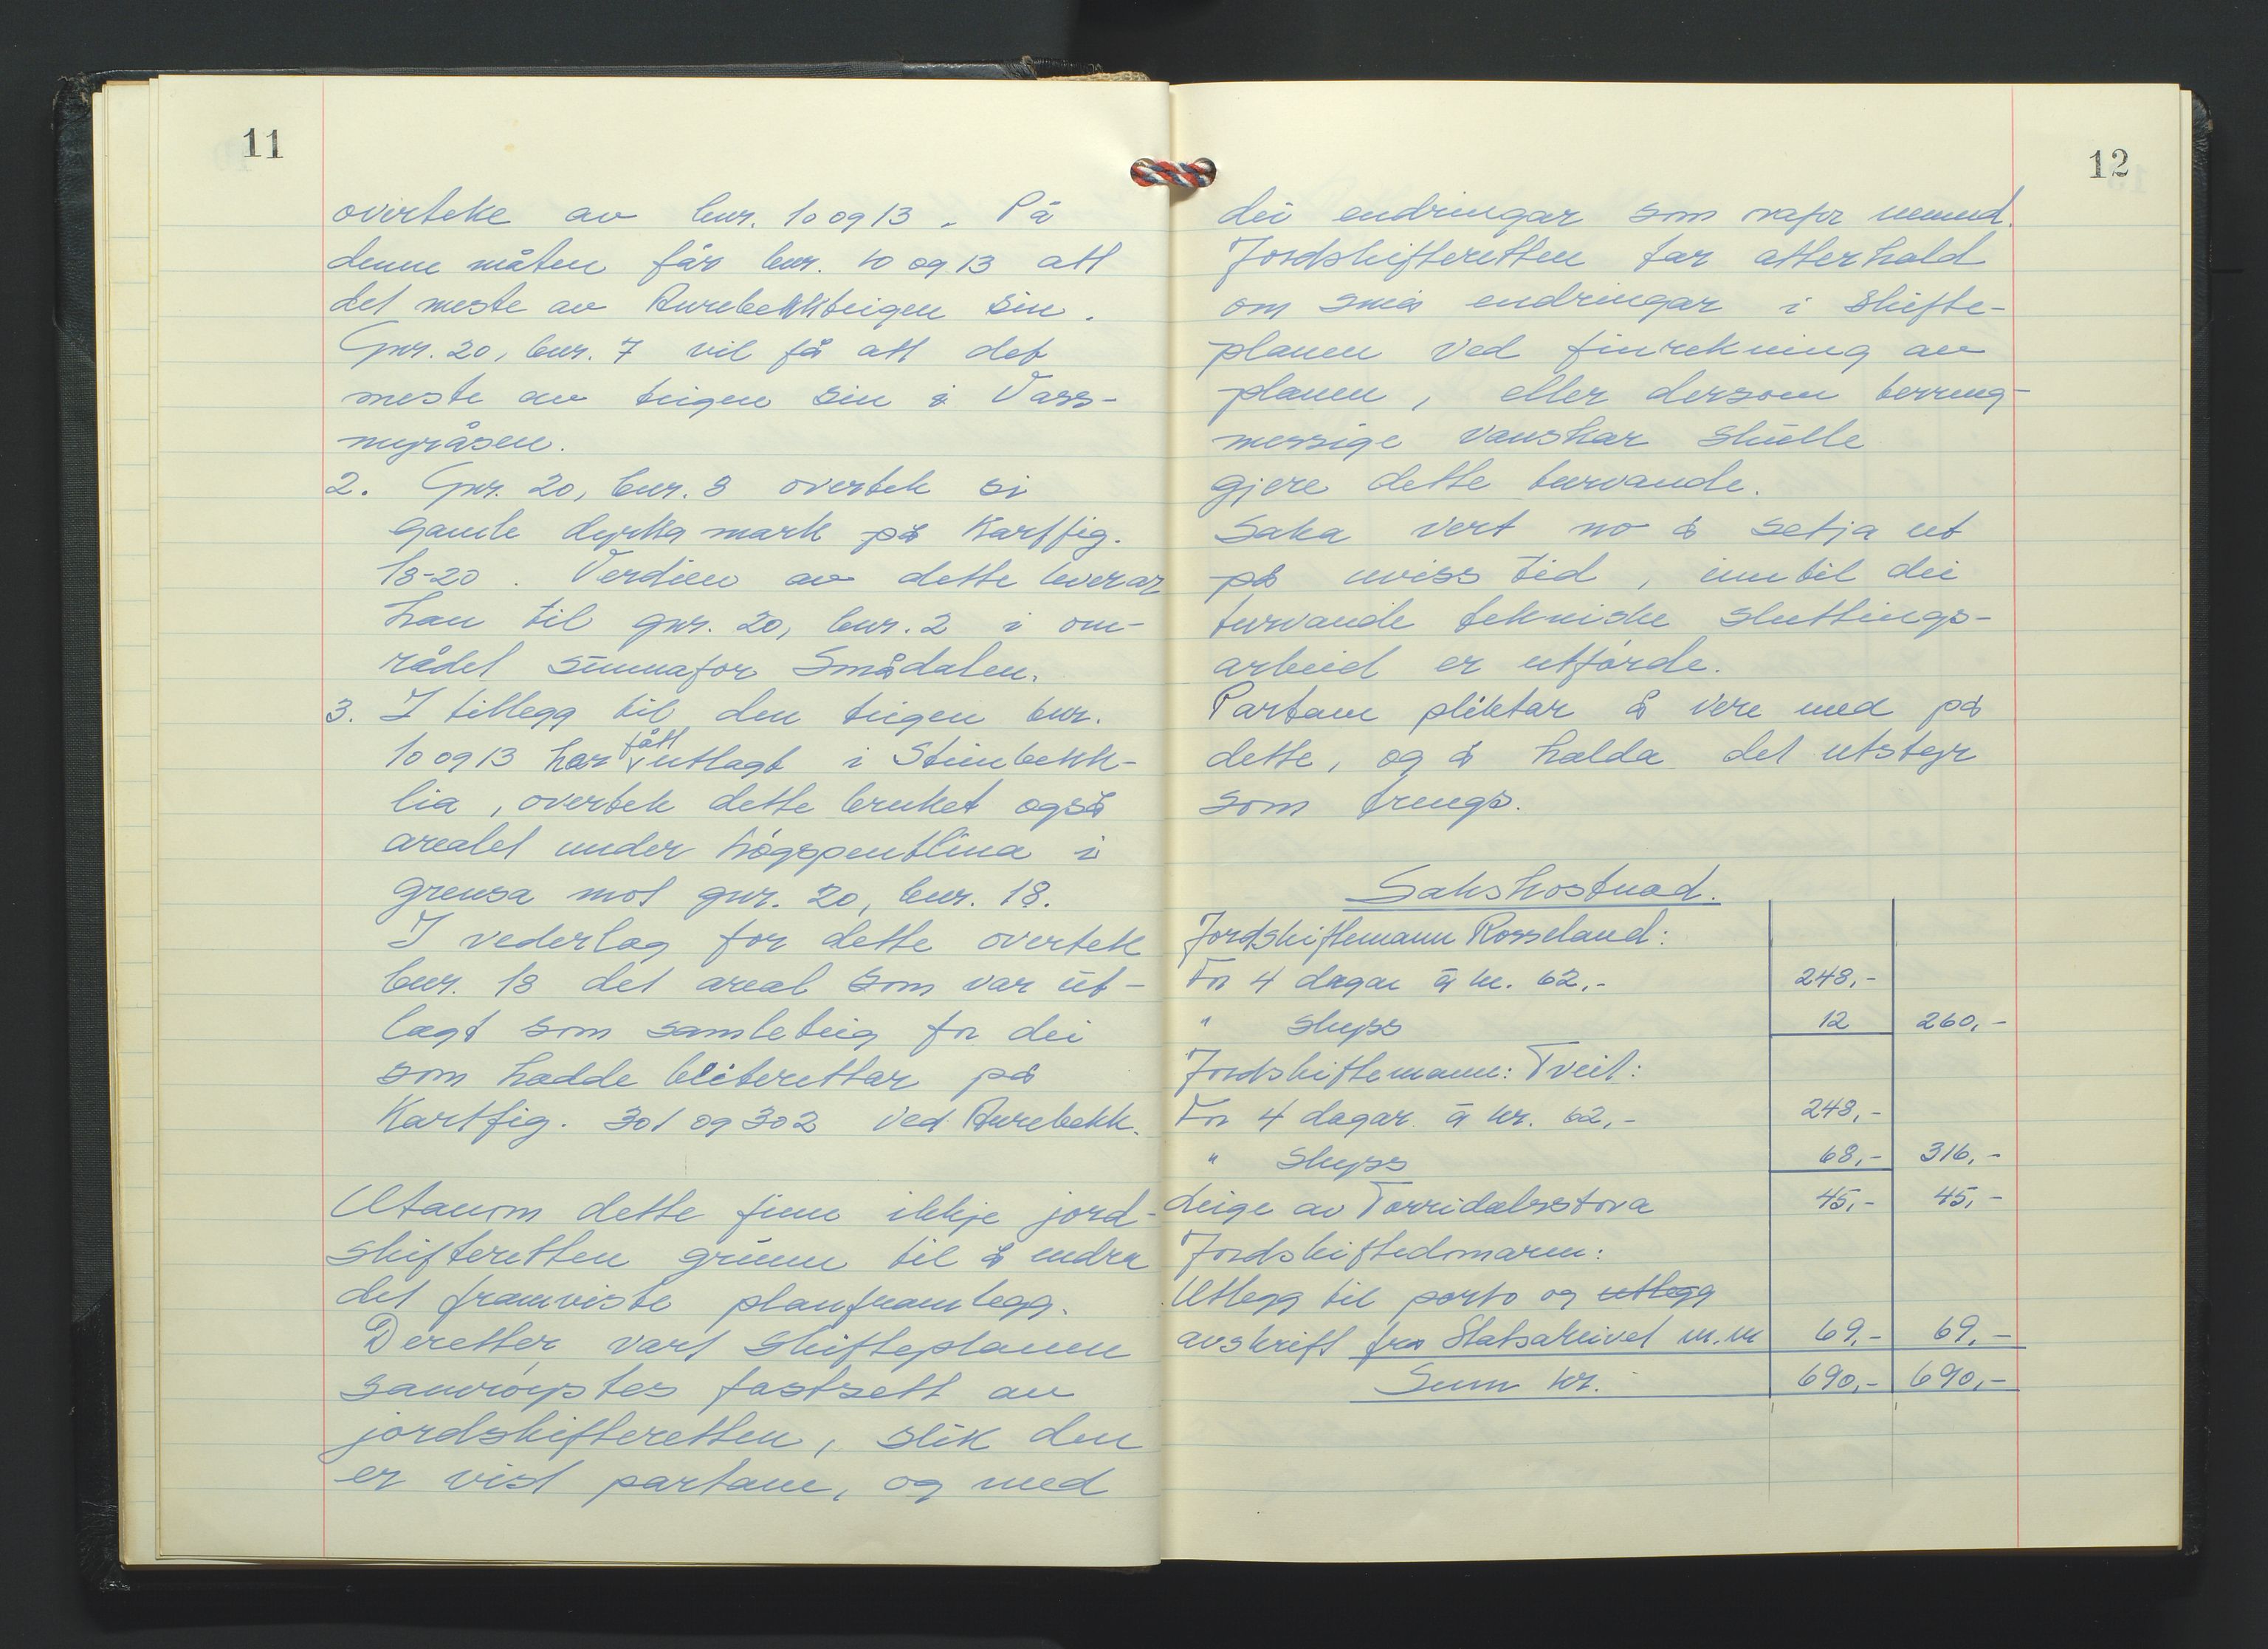 11
overteke av bnr. 10 og 13. På
denne måten får bnr. 10 og 13 att
det meste av Aurebekkteigen sin.
Gnr. 20, bnr. 7 vil få att det
meste av teigen sin i Vass-
myråsen.
2. Gnr. 20, bnr. 3 overtek si
gamle dyrka mark på Kartfig.
18-20. Verdien av dette leverar
han til gnr. 20, bnr. 2 i om-
rådet sunnafor Smådalen.
3. I tillegg til den teigen bnr.
10 og 13 har fått utlagt i Steinbekk-
lia, overtek dette bruket også
arealet under högspentlina i
grensa mot gnr. 20, bnr. 18.
I vederlag for dette overtek
bnr. 18 det areal som var ut-
lagt som samleteig for dei
som hadde beiterettar på
Kartfig. 301 og 302 ved Aurebekk.
Utanom dette finn ikkje jord-
skifteretten grunn til å endra
det framviste planframlegg.
Deretter vart skifteplanen
samröystes fastsett av
jordskifteretten, slik den
er vist partane, og med
12
dei endringar som ovafor nemnd.
Jordskifteretten tar atterhald
om små endringar i skifte-
planen ved finrekning av
planen, eller dersom terreng-
messige vanskar skulle
gjere dette turvande.
Saka vert no å setja ut
på uviss tid, inntil dei
turvande tekniske sluttings-
arbeid er utförde.
Partane pliktar å vere med på
dette, og å halda det utstyr
som trengs.
Sakskostnad.
Jordskiftemann Rosseland:
For 4 dagar à kr. 62,- 248,-
" skyss 12 260,-
Jordskiftemann: Tveit:
For 4 dagar à kr. 62,- 248,-
" Skyss 68,- 316,-
Leige av Torridalsstova 45,- 45,-
Jordskiftedomaren:
Utlegg til porto og utlegg
avskrift fra Statsarkivet m.m 69,- 69,-
Sum kr. 690,- 690,-